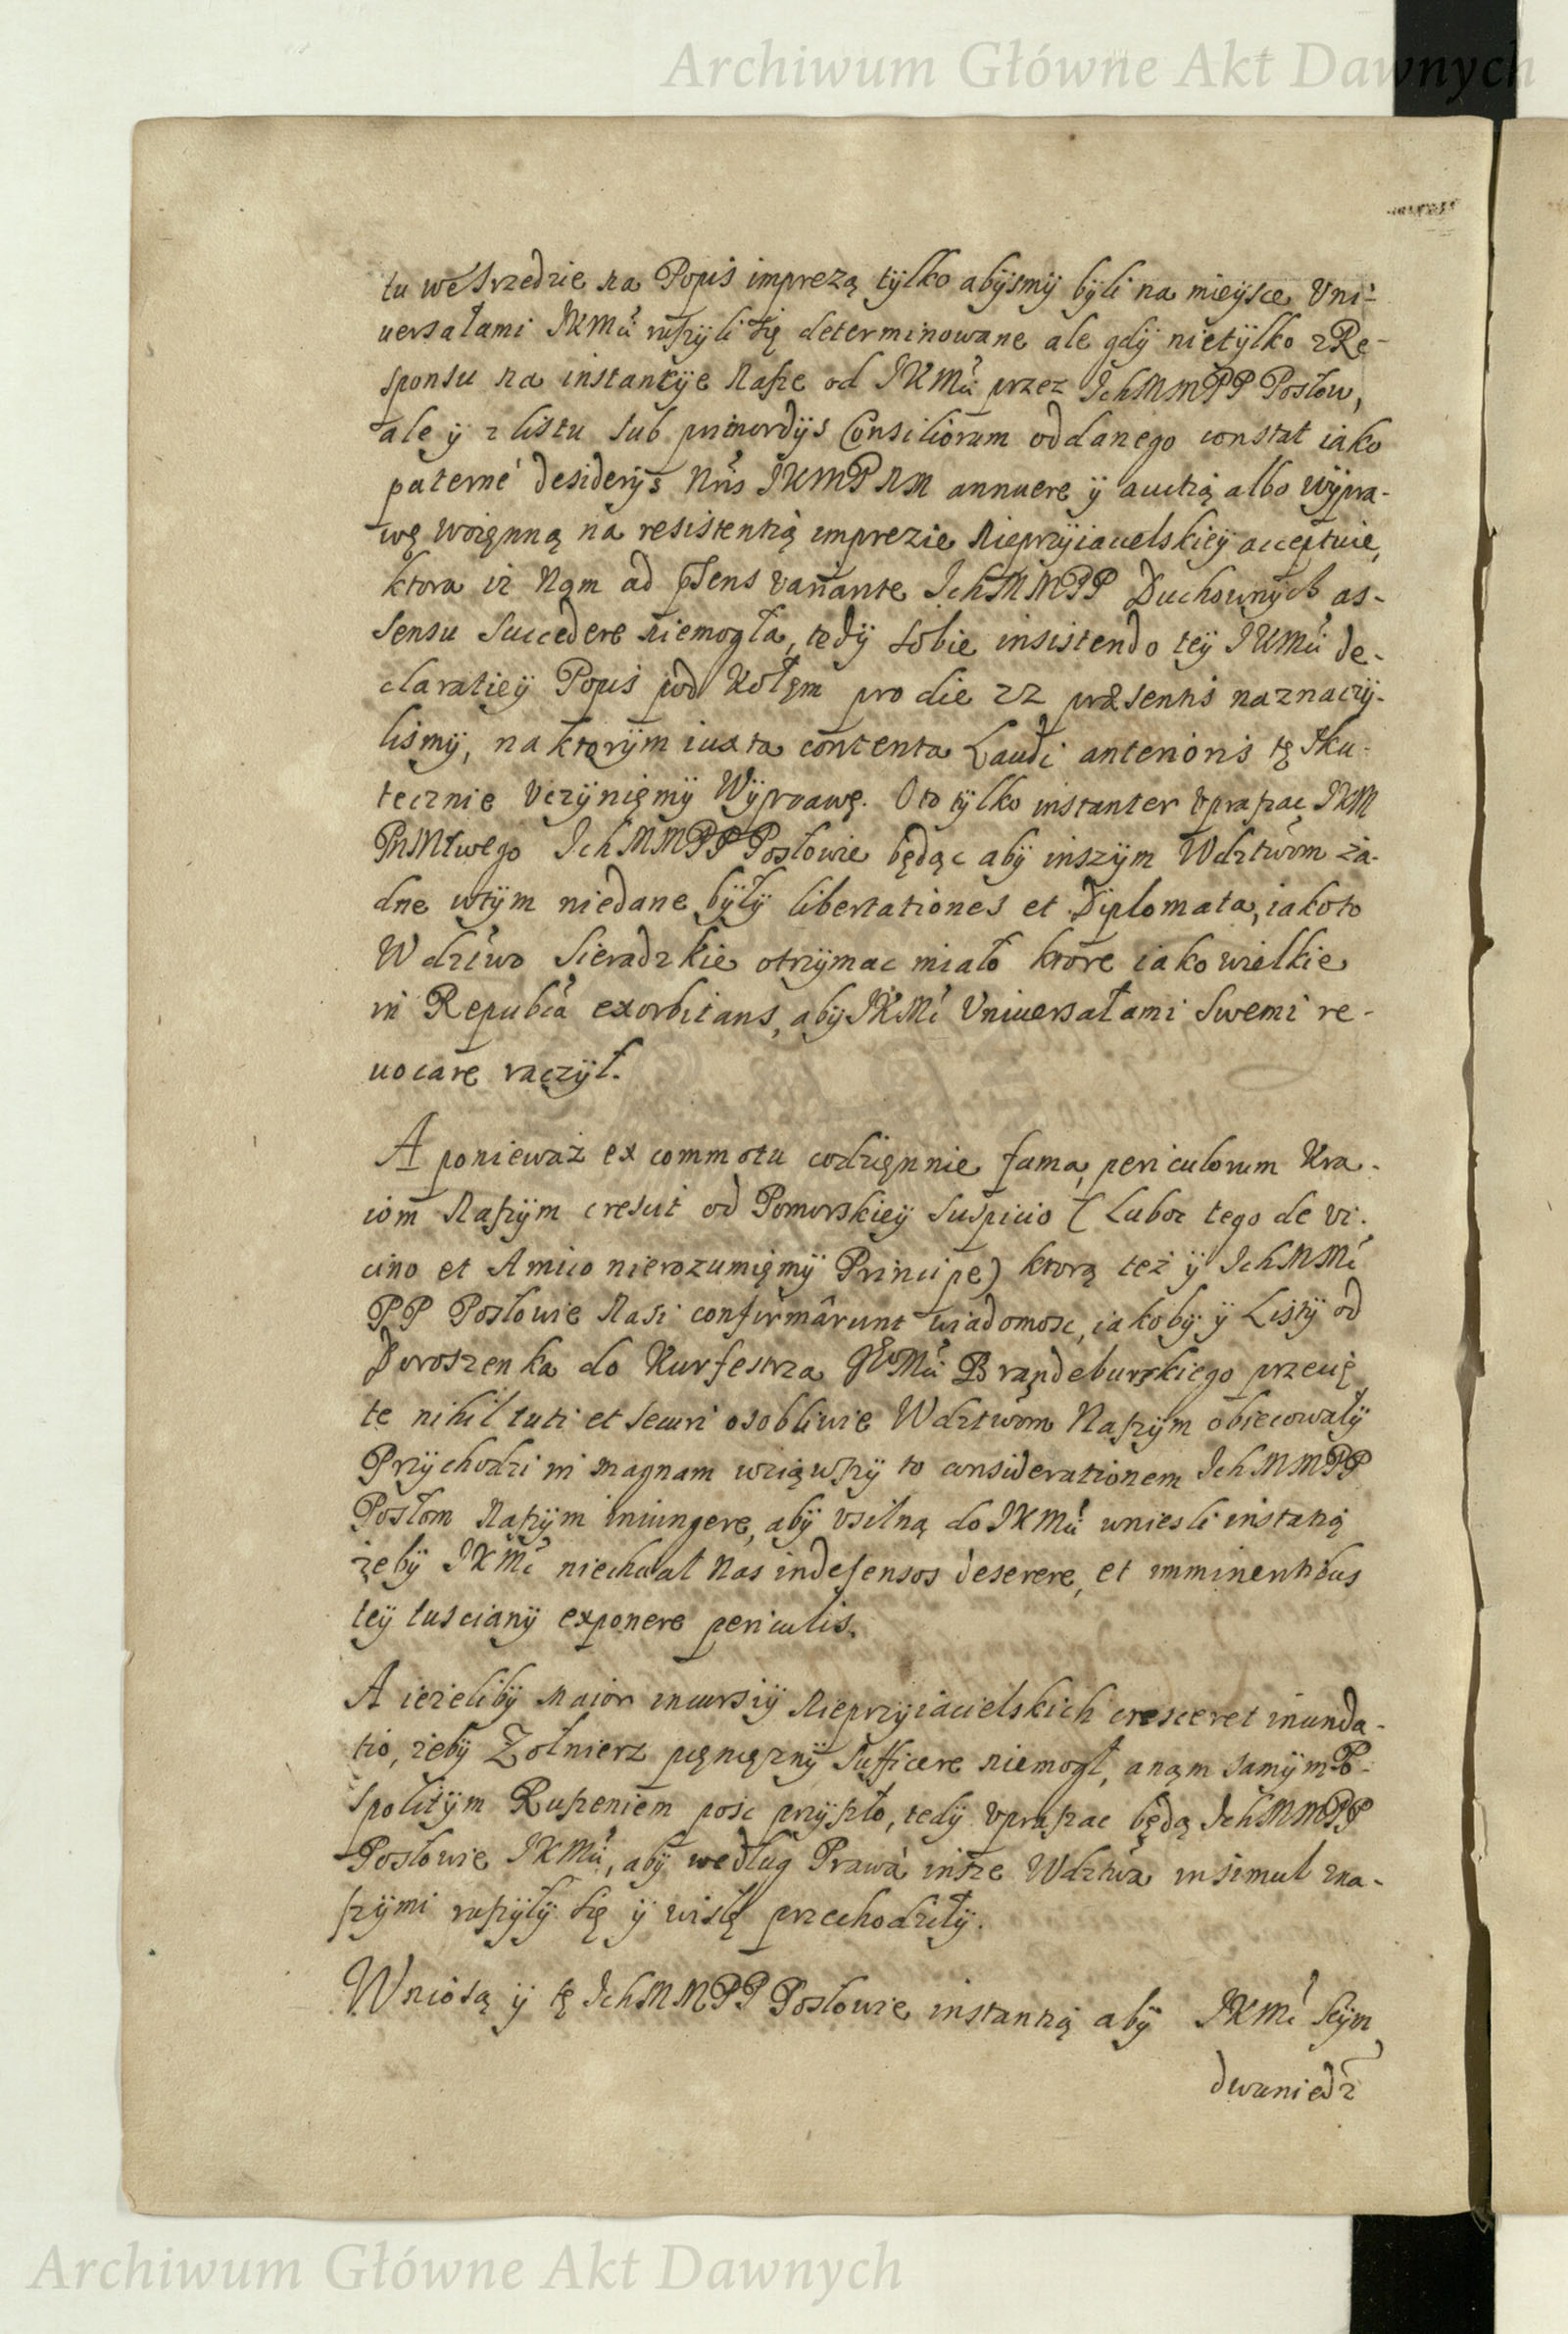 Archiwum Główne Akt Dawnych
tu we Srzedzie na Popis imprezą tylko abysmÿ bÿli na mieÿsce Vni-
uersałami JKMci ruszÿli się determinowane ale gdÿ nietÿlko z Re-
sponsu na instancÿe nasze od JKMci przez IchMMPP Posłow,
ale ÿ z listu sub primordijs Consiliorum oddanego constat iako
paterné desiderijs Nris JKMPNM annuere ÿ auctią albo wÿpra-
wę woięnną na resistentią imprezie nieprzÿiacielskieÿ acceptuie,
ktora iż Nąm ad psens variante IchMMPP Duchownÿch as-
sensu succedere niemogła, tedÿ sobie insistendo teÿ JKMci de-
claratieÿ Popis pod Kołęm pro die 22 præsentis naznaczÿ-
lismÿ, na ktorÿm iuxta contenta Laudi anterioris tę sku-
tecznie Vczÿnięmÿ Wÿprawę. O to tÿlko instanter vpraszac JKM
PNMłwego IchMMPP Posłowie będąc abÿ inszÿm Wdztwom ża-
dne wtÿm niedane bÿłÿ libertationes et Dÿplomata, iakoto
Wdztwo Sieradzkie otrzÿmac miało ktore iako wielkie
in Repubca exorbitans, abÿ JKMć Vniuersałami Swemi re-
uocare raczÿł.
A ponieważ ex commotu codzięnnie fama, periculorum Kra-
iom Naszÿm crescit od Pomorskieÿ suspicio (Luboc tego de vi-
cino et Amico nierozumięmÿ Principe) ktorą też ÿ IchMMć
PP Posłowie Nasi confirmârunt wiadomosc, iakobÿ ÿ Listÿ od
Doroszenka do Kurfestrza JeoMci Brąndeburskiego przeię
te nihil tuti et securi osobliwie Wdztwom Naszÿm obiecowałÿ
Przÿchodzi in magnam wziąwszÿ to considerationem IchMMPP
Posłom Naszÿm iniungere, abÿ vsilną do JKMci wniesli instatią
zebÿ JKMć niechciał Nas indefensos deserere, et imminentibus
teÿ tuscianÿ exponere periculis.
A iezelibÿ maior incursiÿ Nieprzÿiacielskich cresceret inunda-
tio, zebÿ Zołnierz pęnięznÿ sufficere niemogł, a nąm samÿm Po-
spolitÿm Ruszeniem pojsc przÿszło, tedÿ vpraszac będą IchMMPP
Posłowie JKMci, abÿ według Prawa insze Wdztwa insimul zna-
szÿmi ruszÿłÿ się ÿ wisłę przechodziłÿ.
Wniosą ÿ tę IchMMPP Posłowie instantią abÿ JKMć Seÿm
dwuniedz
Archiwum Główne Akt Dawnych